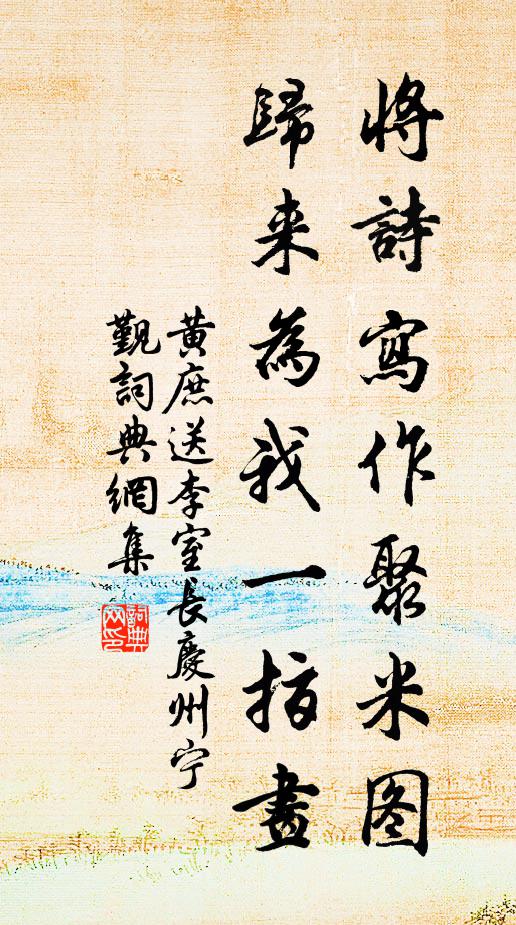 將詩寫作聚米图
歸来為我一指畫
黃庶送李室長慶州宁
觐詞典網集
詞典
网印